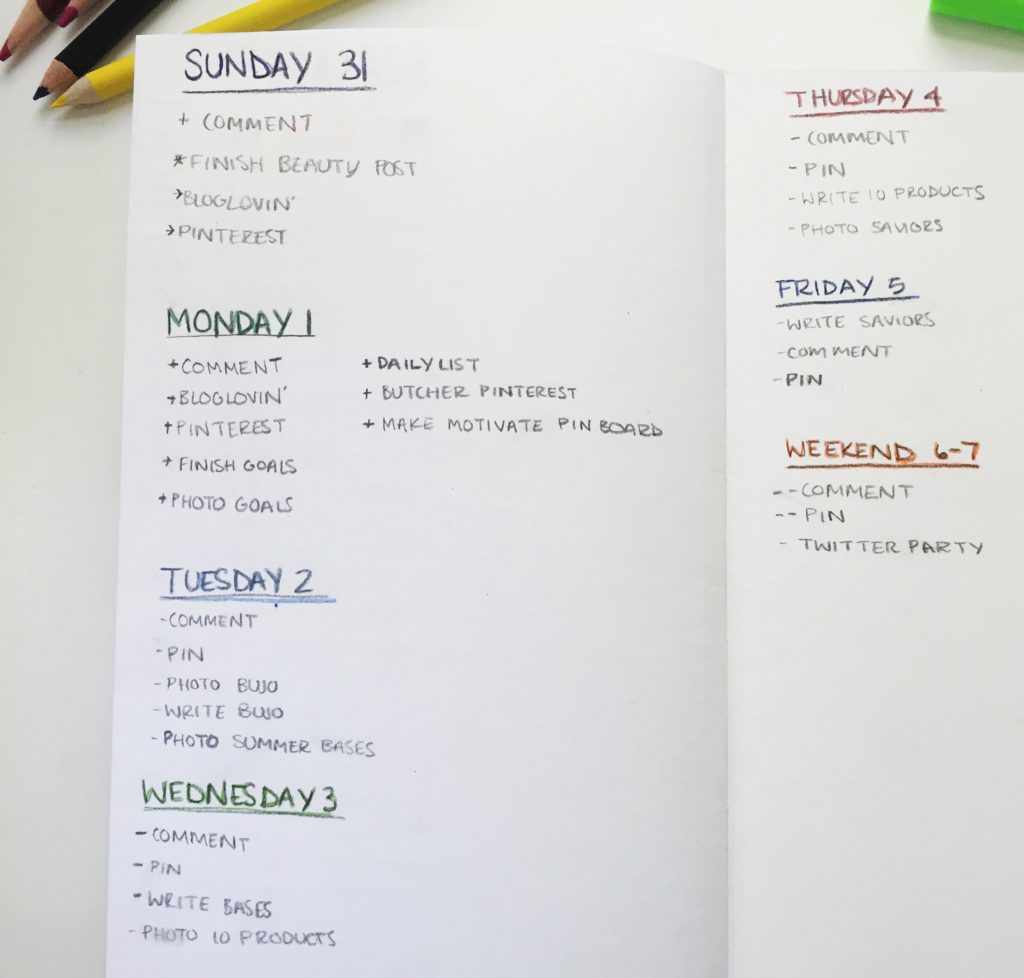 SUNDAY 31
+ COMMENT
* FINISH BEAUTY POST
→ BLOGLOVIN'
→ PINTEREST
MONDAY 1
+ COMMENT
+ BLOGLOVIN'
+ PINTEREST
+ FINISH GOALS
+ PHOTO GOALS
+ DAILY LIST
+ BUTCHER PINTEREST
+ MAKE MOTIVATE PIN BOARD
TUESDAY 2
- COMMENT
- PIN
- PHOTO BUJO
- WRITE BUJO
- PHOTO SUMMER BASES
WEDNESDAY 3
- COMMENT
- PIN
- WRITE BASES
- PHOTO 10 PRODUCTS
THURSDAY 4
- COMMENT
- PIN
- WRITE 10 PRODUCTS
- PHOTO SAVIORS
FRIDAY 5
- WRITE SAVIORS
- COMMENT
- PIN
WEEKEND 6-7
-- COMMENT
-- PIN
- TWITTER PARTY